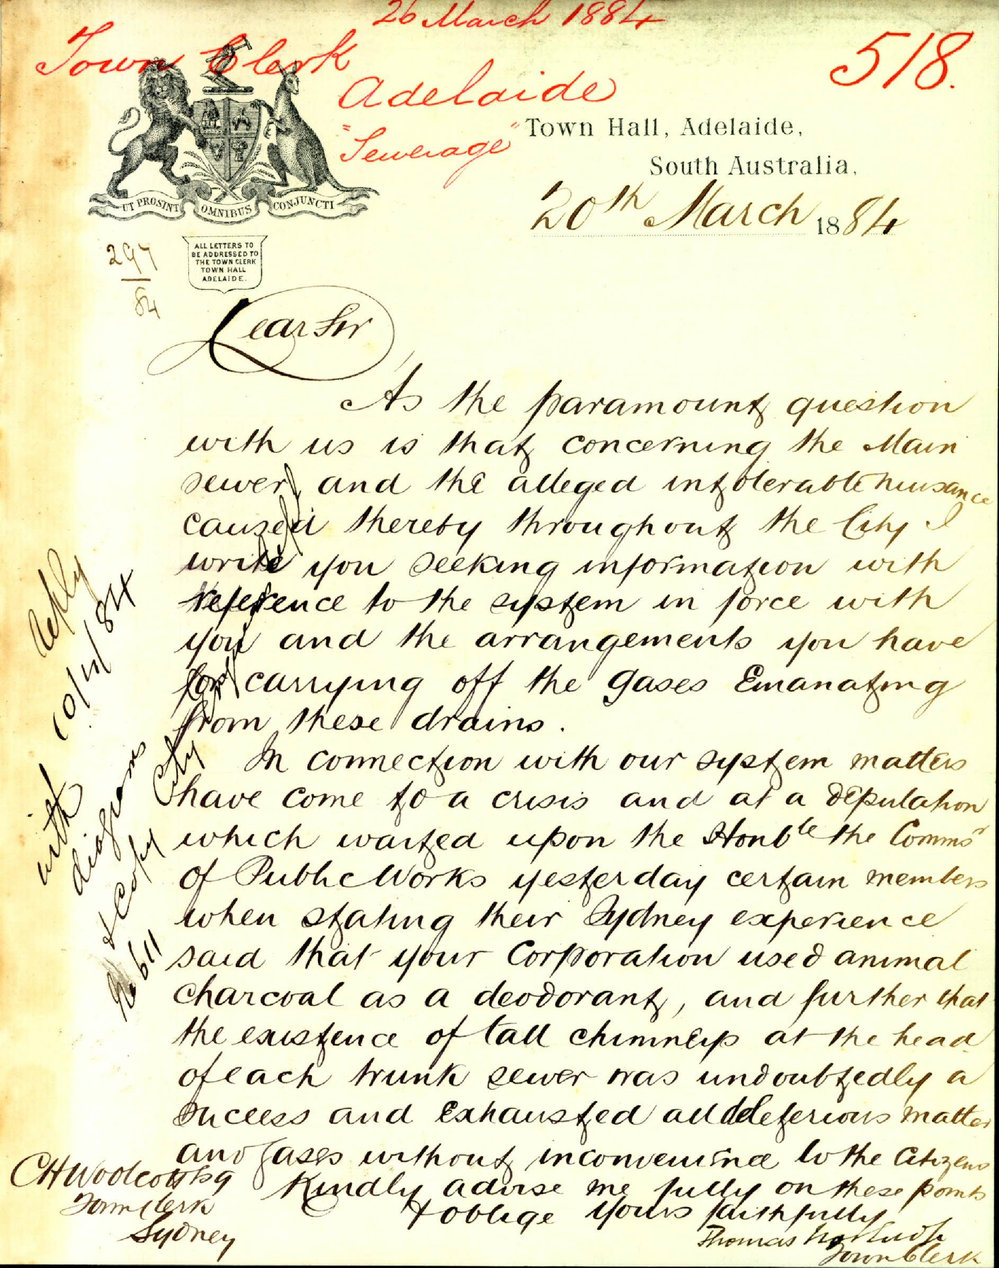 26 March 1884
Town Clerk
Adelaide
"Sewerage"
518.
Town Hall, Adelaide,
South Australia,
20th March 1884
UT PROSINT OMNIBUS CONJUNCTI
297
84
ALL LETTERS TO
BE ADDRESSED TO
THE TOWN CLERK
TOWN HALL
ADELAIDE.
Dear Sir
As the paramount question
with us is that concerning the Main
sewer, and the alleged intolerable nuisance
caused thereby throughout the City I
write you seeking information with
reference to the system in force with
you and the arrangements you have
for carrying off the gases Emanating
from these drains.
In connection with our system matters
have come to a crisis and at a deputation
which waited upon the Honble the Commrs
of Public Works yesterday certain members
when stating their Sydney experience
said that your Corporation used animal
charcoal as a deodorant, and further that
the existence of tall chimneys at the head
of each trunk sewer was undoubtedly a
success and Exhausted all deleterious matter
and gases without inconvenience to the Citizens
Kindly advise me fully on these points
& oblige yours faithfully
Thomas Worsnop
Town Clerk
CH Woolcott Esq
Town Clerk
Sydney
Reply 10/4/84
with diagrams
& Copy City
611